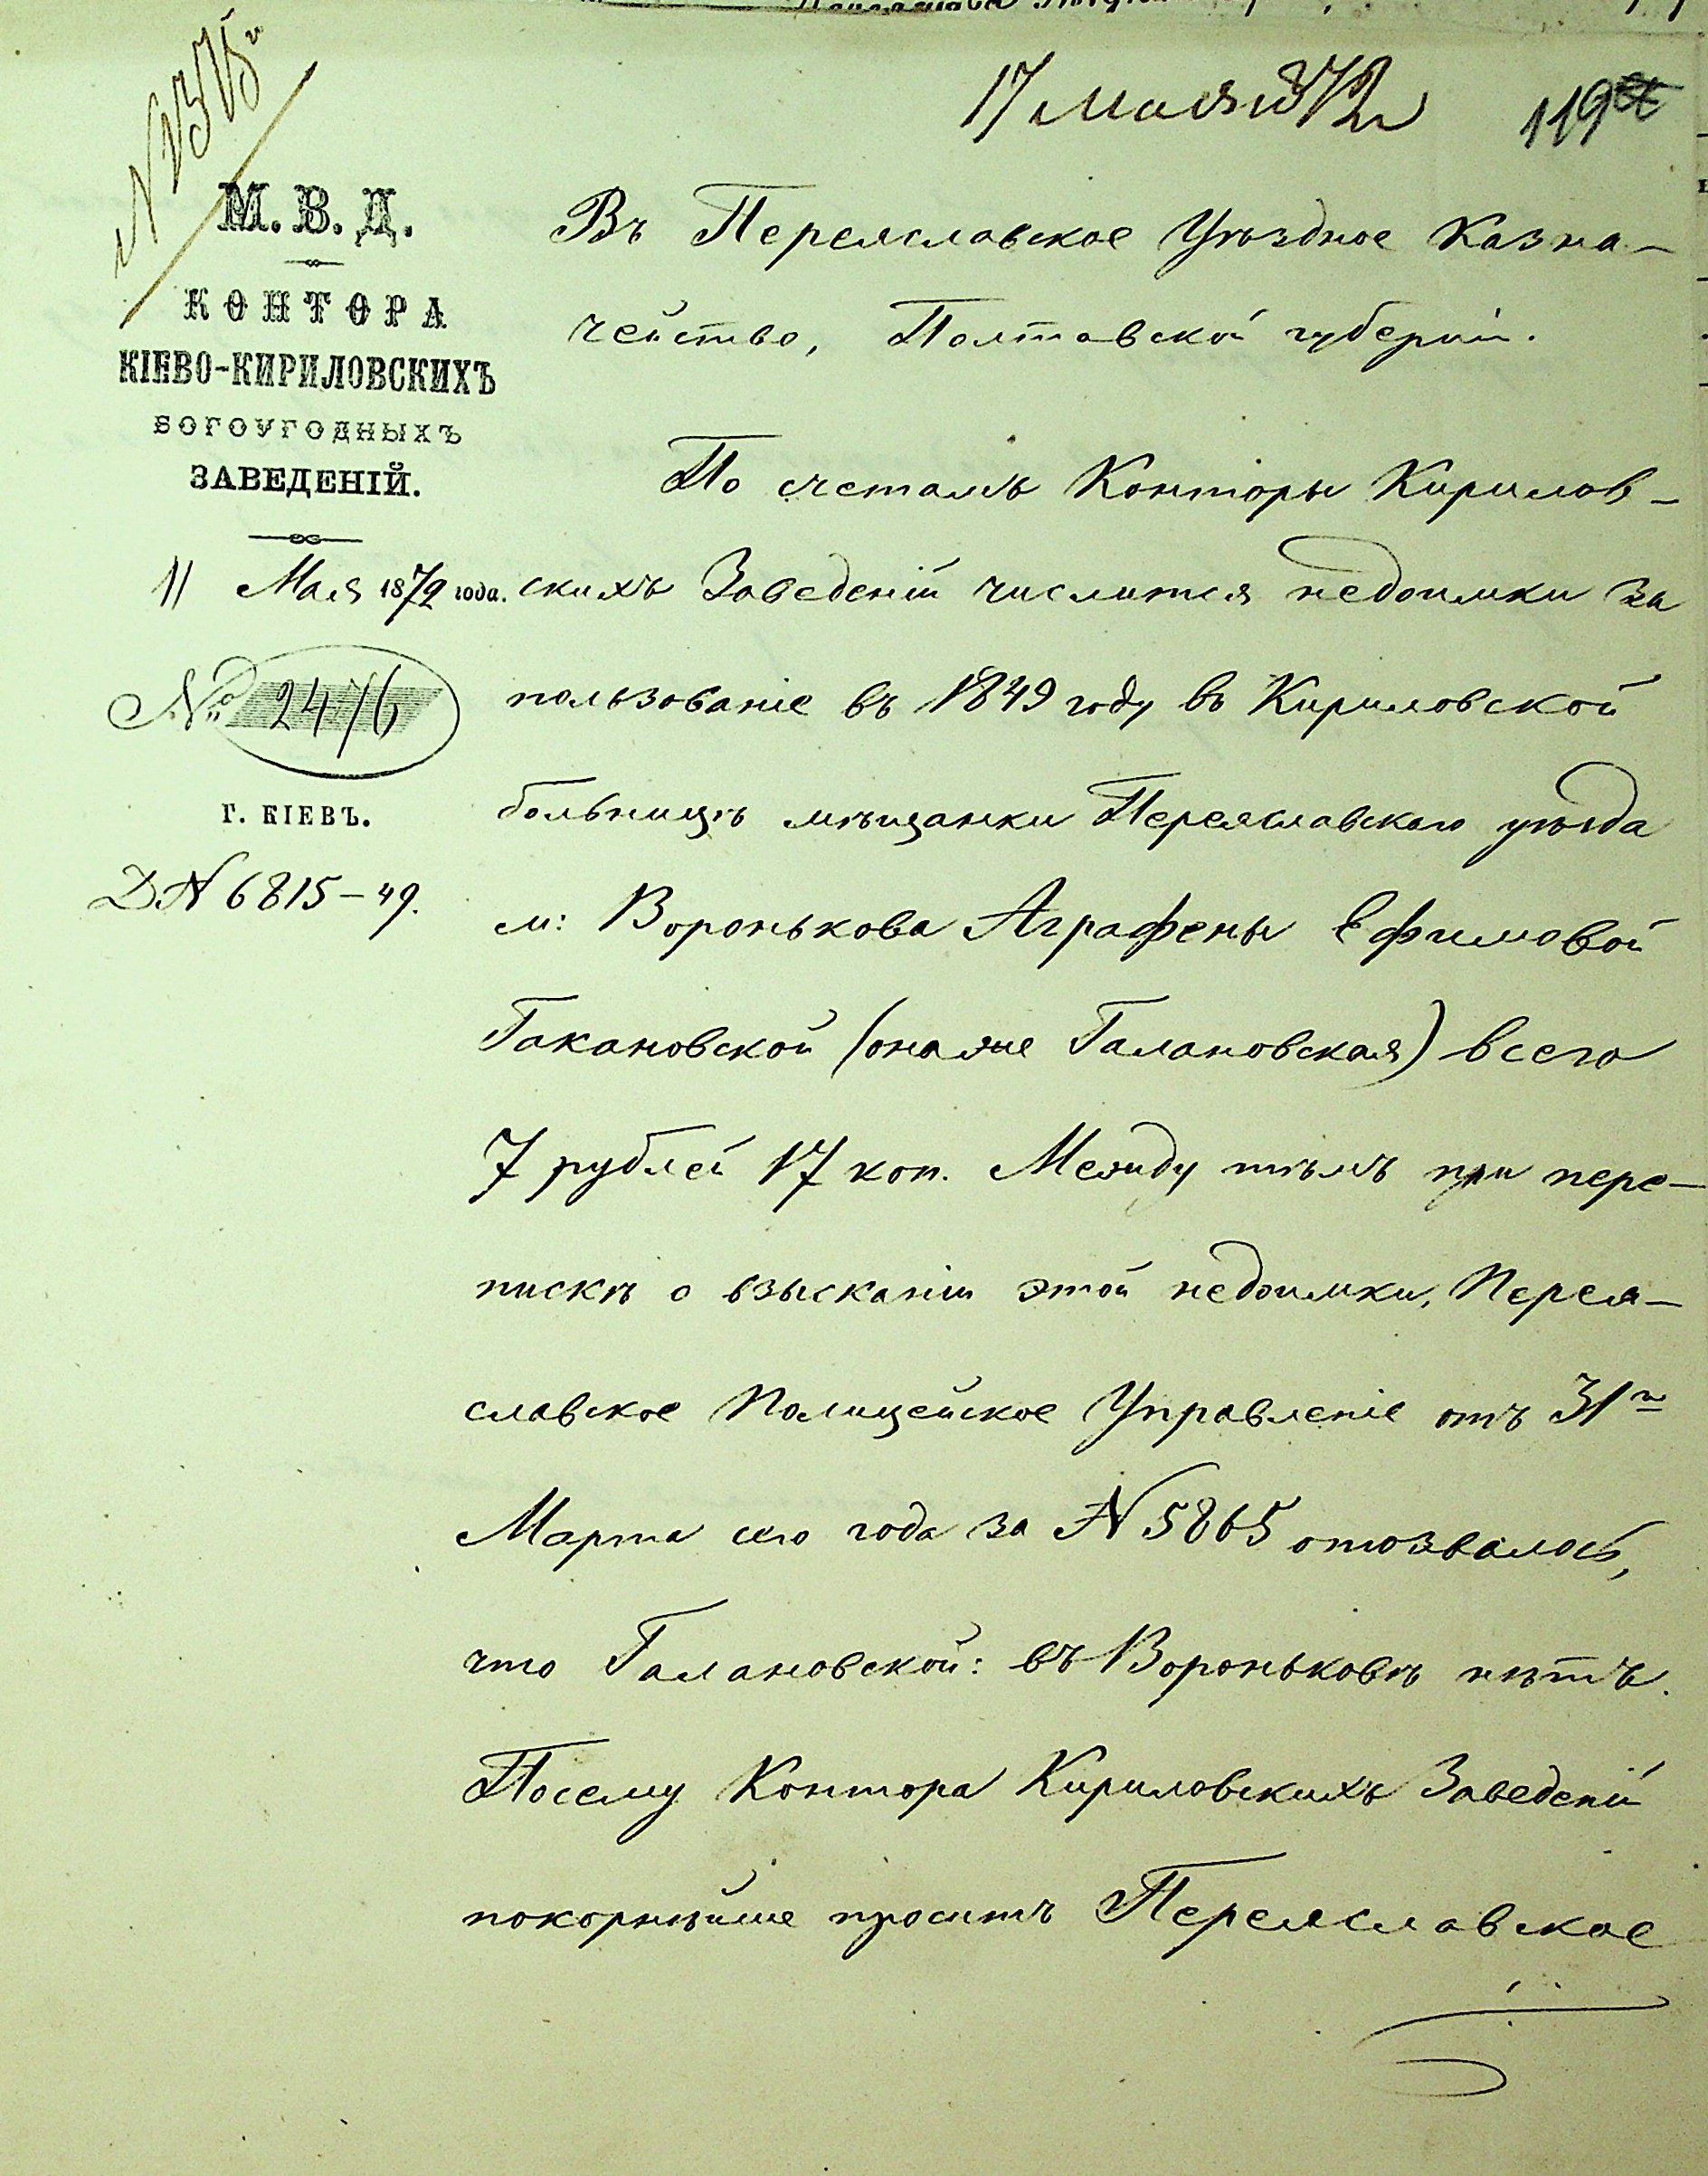 17 Мая 872
119
М. В. Д.
КОНТОРА
КІЕВО-КИРИЛОВСКИХЪ
БОГОУГОДНЫХЪ
ЗАВЕДЕНІЙ.
11 Мая 1872 года.
№ 2476
Г. КІЕВЪ.
Д № 6815-49.
Въ Переяславское Уѣздное Казна-
чейство, Полтавской губерніи.
По счетамъ Конторы Кирилов-
скихъ Заведеній числится недоимки за
пользованіе въ 1849 году въ Кириловской
больницѣ мѣщанки Переяславскаго уѣзда
м: Воронькова Аграфены Ефимовой
Гакановской (она же Галановская) всего
7 рублей 17 коп. Между тѣмъ при пере-
пискѣ о взысканіи этой недоимки, Перея-
славское Полицейское Управленіе отъ 31го
Марта сего года за № 5865 отозвалось,
что Галановской: въ Вороньковѣ нѣтъ.
Посему Контора Кириловскихъ Заведеній
покорнѣйше проситъ Переяславское